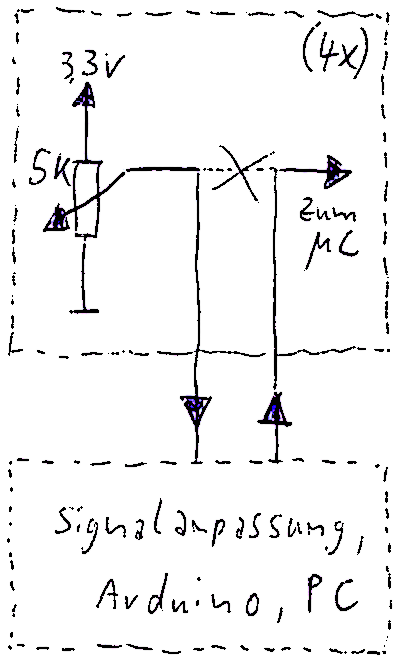 (4x)
3,3V
5K
zum
µC
Signalanpassung,
Arduino, PC